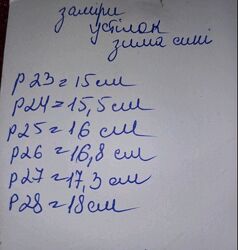 заміри
устілок
зима сині
р23=15см
р24=15,5см
р25=16 см
р26=16,8 см
р27=17,3 см
р28=18см